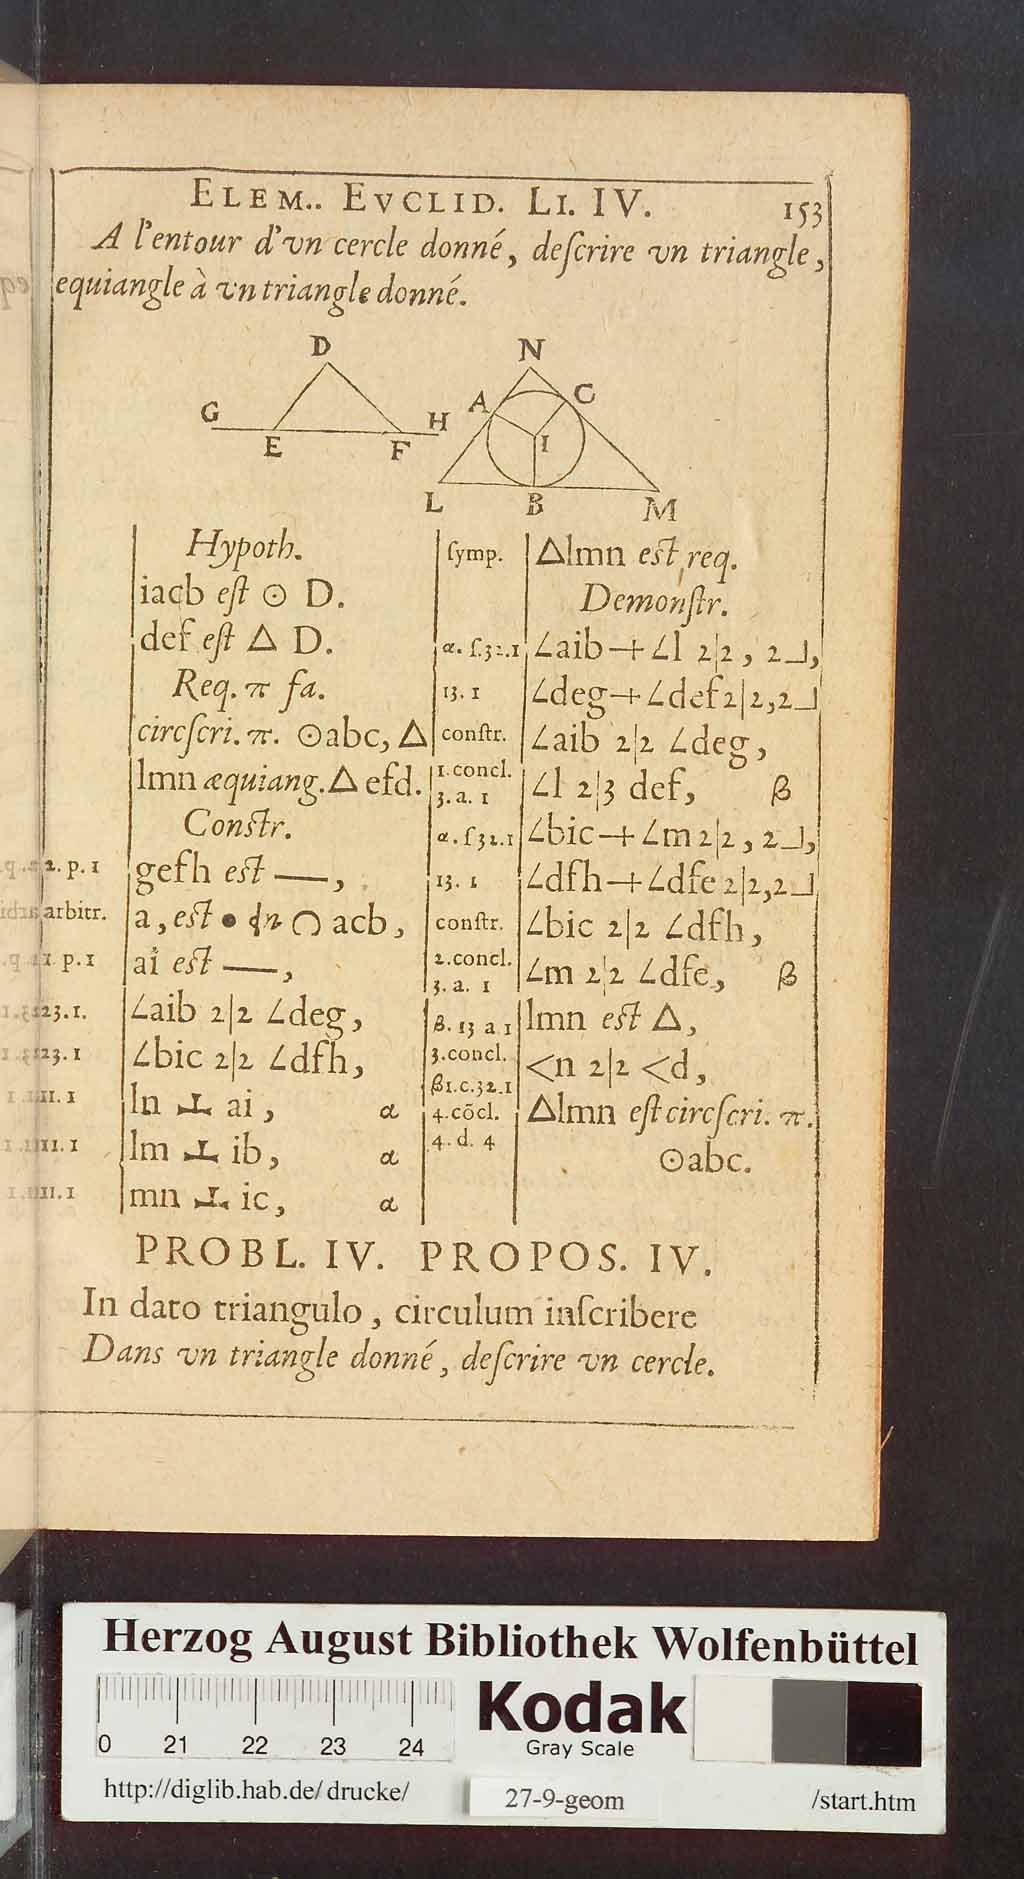 ELEM.. EVCLID. LI. IV. 153
A l'entour d'vn cercle donné, deſcrire vn triangle,
equiangle à vn triangle donné.
D
G
E
F
H
N
A
C
I
L
B
M
Hypoth.
iacb eſt ⊙ D.
def eſt △ D.
Req. π fa.
circſcri. π. ⊙abc, △
lmn æquiang. △ efd.
Conſtr.
2. p. 1 gefh eſt —,
arbitr. a, eſt • in ∩ acb,
1 p. 1 ai eſt —,
23. 1. ∠aib 2|2 ∠deg,
23. 1 ∠bic 2|2 ∠dfh,
11. 1 ln ⊥ ai, α
11. 1 lm ⊥ ib, α
11. 1 mn ⊥ ic, α
ſymp. △lmn eſt req.
Demonſtr.
α. ſ.32.1 ∠aib + ∠l 2|2, 2⅃,
13. 1 ∠deg + ∠def 2|2, 2⅃
conſtr. ∠aib 2|2 ∠deg,
1. concl.
3. a. 1 ∠l 2|3 def, β
α. ſ 32.1 ∠bic + ∠m 2|2, 2⅃,
13. 1 ∠dfh + ∠dfe 2|2, 2⅃
conſtr. ∠bic 2|2 ∠dfh,
2. concl.
3. a. 1 ∠m 2|2 ∠dfe, β
β. 13 a 1 lmn eſt △,
3. concl.
β1.c.32.1 <n 2|2 <d,
4. cõcl. △lmn eſt circſcri. π.
4. d. 4 ⊙abc.
PROBL. IV. PROPOS. IV.
In dato triangulo, circulum inſcribere
Dans vn triangle donné, deſcrire vn cercle.
Herzog August Bibliothek Wolfenbüttel
0 21 22 23 24
Kodak
Gray Scale
http://diglib.hab.de/ drucke/ 27-9-geom /start.htm